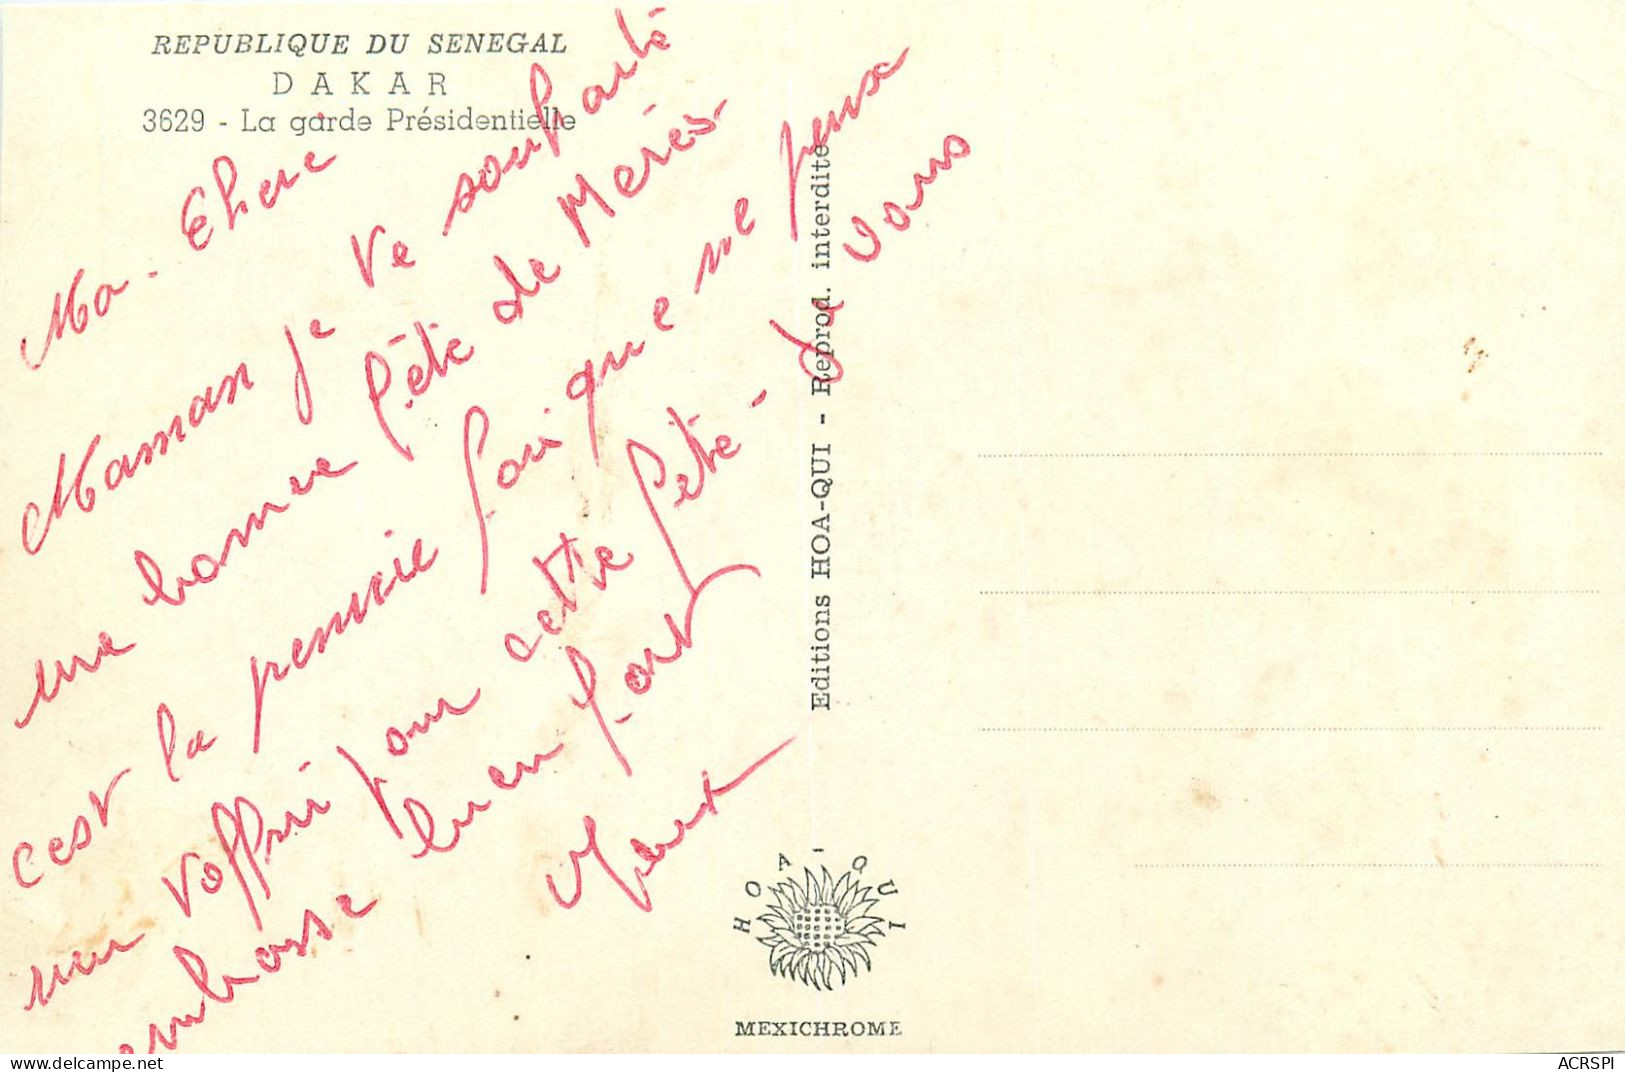 REPUBLIQUE DU SENEGAL
DAKAR
3629 - La garde Présidentielle
Ma - Cherie
Maman je Ve souharté
une bonne fété de Merés-
c'est la pennie foi que me pensa
rien Voffrir pour cette feté - de vous
embrasse bien fort
Editions HOA-QUI - Reprod. interdite
HOA-QUI
MEXICHROME
ACRSPI